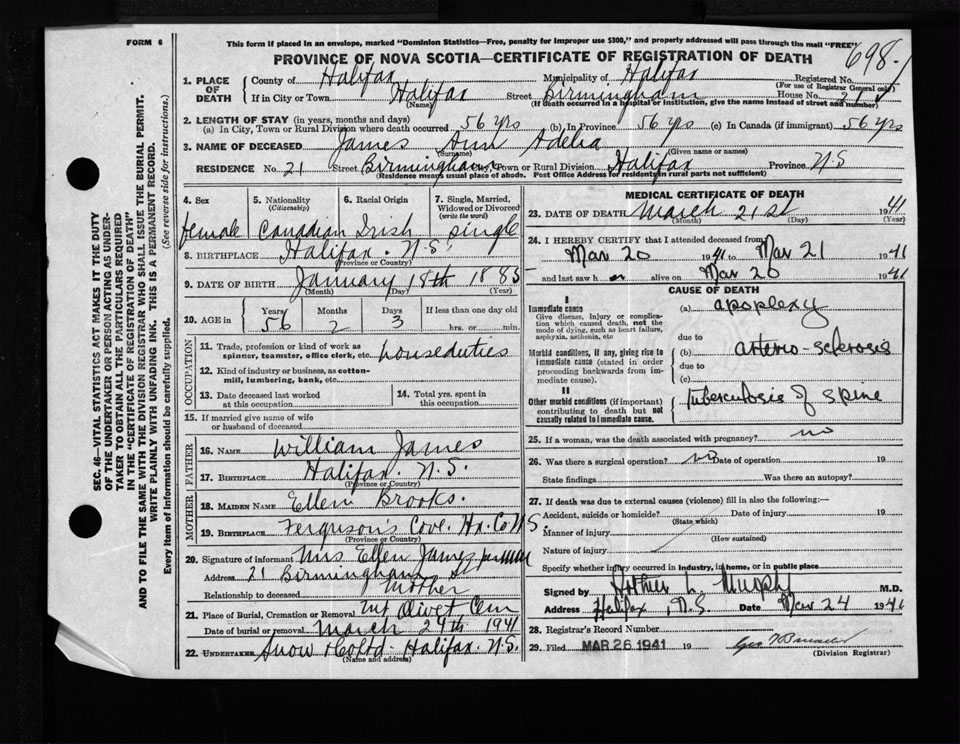 FORM 6
This form if placed in an envelope, marked "Dominion Statistics—Free, penalty for improper use $300," and properly addressed will pass through the mail "FREE"
PROVINCE OF NOVA SCOTIA—CERTIFICATE OF REGISTRATION OF DEATH
698
1. PLACE OF DEATH County of Halifax Municipality of Halifax Registered No.
(For use of Registrar General only)
If in City or Town Halifax Street Birmingham House No. 21
(Name) (If death occurred in a hospital or institution, give the name instead of street and number)
2. LENGTH OF STAY (in years, months and days)
(a) In City, Town or Rural Division where death occurred 56 yrs (b) In Province 56 yrs (c) In Canada (if immigrant) 56 yrs
3. NAME OF DECEASED James Ann Adelia
(Surname) (Given name or names)
RESIDENCE No. 21 Street Birmingham City, Town or Rural Division Halifax Province N.S
(Residence means usual place of abode. Post Office Address for residents in rural parts not sufficient)
4. Sex 5. Nationality (Citizenship) 6. Racial Origin 7. Single, Married, Widowed or Divorced (write the word)
female Canadian Irish single
8. BIRTHPLACE Halifax. N.S.
(Province or Country)
9. DATE OF BIRTH January 18th 1885
(Month) (Day) (Year)
10. AGE in Years Months Days If less than one day old
56 2 3 hrs. or min.
OCCUPATION
11. Trade, profession or kind of work as spinner, teamster, office clerk, etc. houseduties
12. Kind of industry or business, as cotton-mill, lumbering, bank, etc.
13. Date deceased last worked at this occupation
14. Total yrs. spent in this occupation
15. If married give name of wife or husband of deceased
FATHER
16. NAME William James
17. BIRTHPLACE Halifax. N.S.
MOTHER
18. MAIDEN NAME Ellen Brooks.
19. BIRTHPLACE Ferguson's Cove. Hx. Co N.S.
(Province or Country)
20. Signature of informant Mrs Ellen James
Address 21 Birmingham St
Relationship to deceased Mother
21. Place of Burial, Cremation or Removal Mt Olivet Cem
Date of burial or removal March 24th 1941
22. UNDERTAKER Snow & Co Ltd. Halifax. N.S.
(Name and address)
MEDICAL CERTIFICATE OF DEATH
23. DATE OF DEATH March 21st 1941
(Month) (Day) (Year)
24. I HEREBY CERTIFY that I attended deceased from
Mar 20 1941 to Mar 21 1941
and last saw h er alive on Mar 20 1941
CAUSE OF DEATH
I
Immediate cause
Give disease, injury or complication which caused death, not the mode of dying, such as heart failure, asphyxia, asthenia, etc
(a) apoplexy
due to
Morbid conditions, if any, giving rise to immediate cause (stated in order proceeding backwards from immediate cause).
(b) arterio-sclerosis
due to
(c)
II
Other morbid conditions (if important) contributing to death but not causally related to immediate cause.
tuberculosis of spine
25. If a woman, was the death associated with pregnancy? no
26. Was there a surgical operation? no Date of operation 19
State findings Was there an autopsy?
27. If death was due to external causes (violence) fill in also the following:
Accident, suicide or homicide? Date of injury 19
(State which)
Manner of injury
(How sustained)
Nature of injury
Specify whether injury occurred in industry, in home, or in public place
Signed by Arthur L. Murphy M.D.
Address Halifax, N.S. Date Mar 24 1941
28. Registrar's Record Number
29. Filed MAR 26 1941 19
(Division Registrar)
SEC. 46—VITAL STATISTICS ACT MAKES IT THE DUTY
OF THE UNDERTAKER OR PERSON ACTING AS UNDER-
TAKER TO OBTAIN ALL THE PARTICULARS REQUIRED
IN THE "CERTIFICATE OF REGISTRATION OF DEATH"
AND TO FILE THE SAME WITH THE DIVISION REGISTRAR WHO SHALL ISSUE THE BURIAL PERMIT.
WRITE PLAINLY WITH UNFADING INK. THIS IS A PERMANENT RECORD.
Every item of information should be carefully supplied. (See reverse side for instructions).